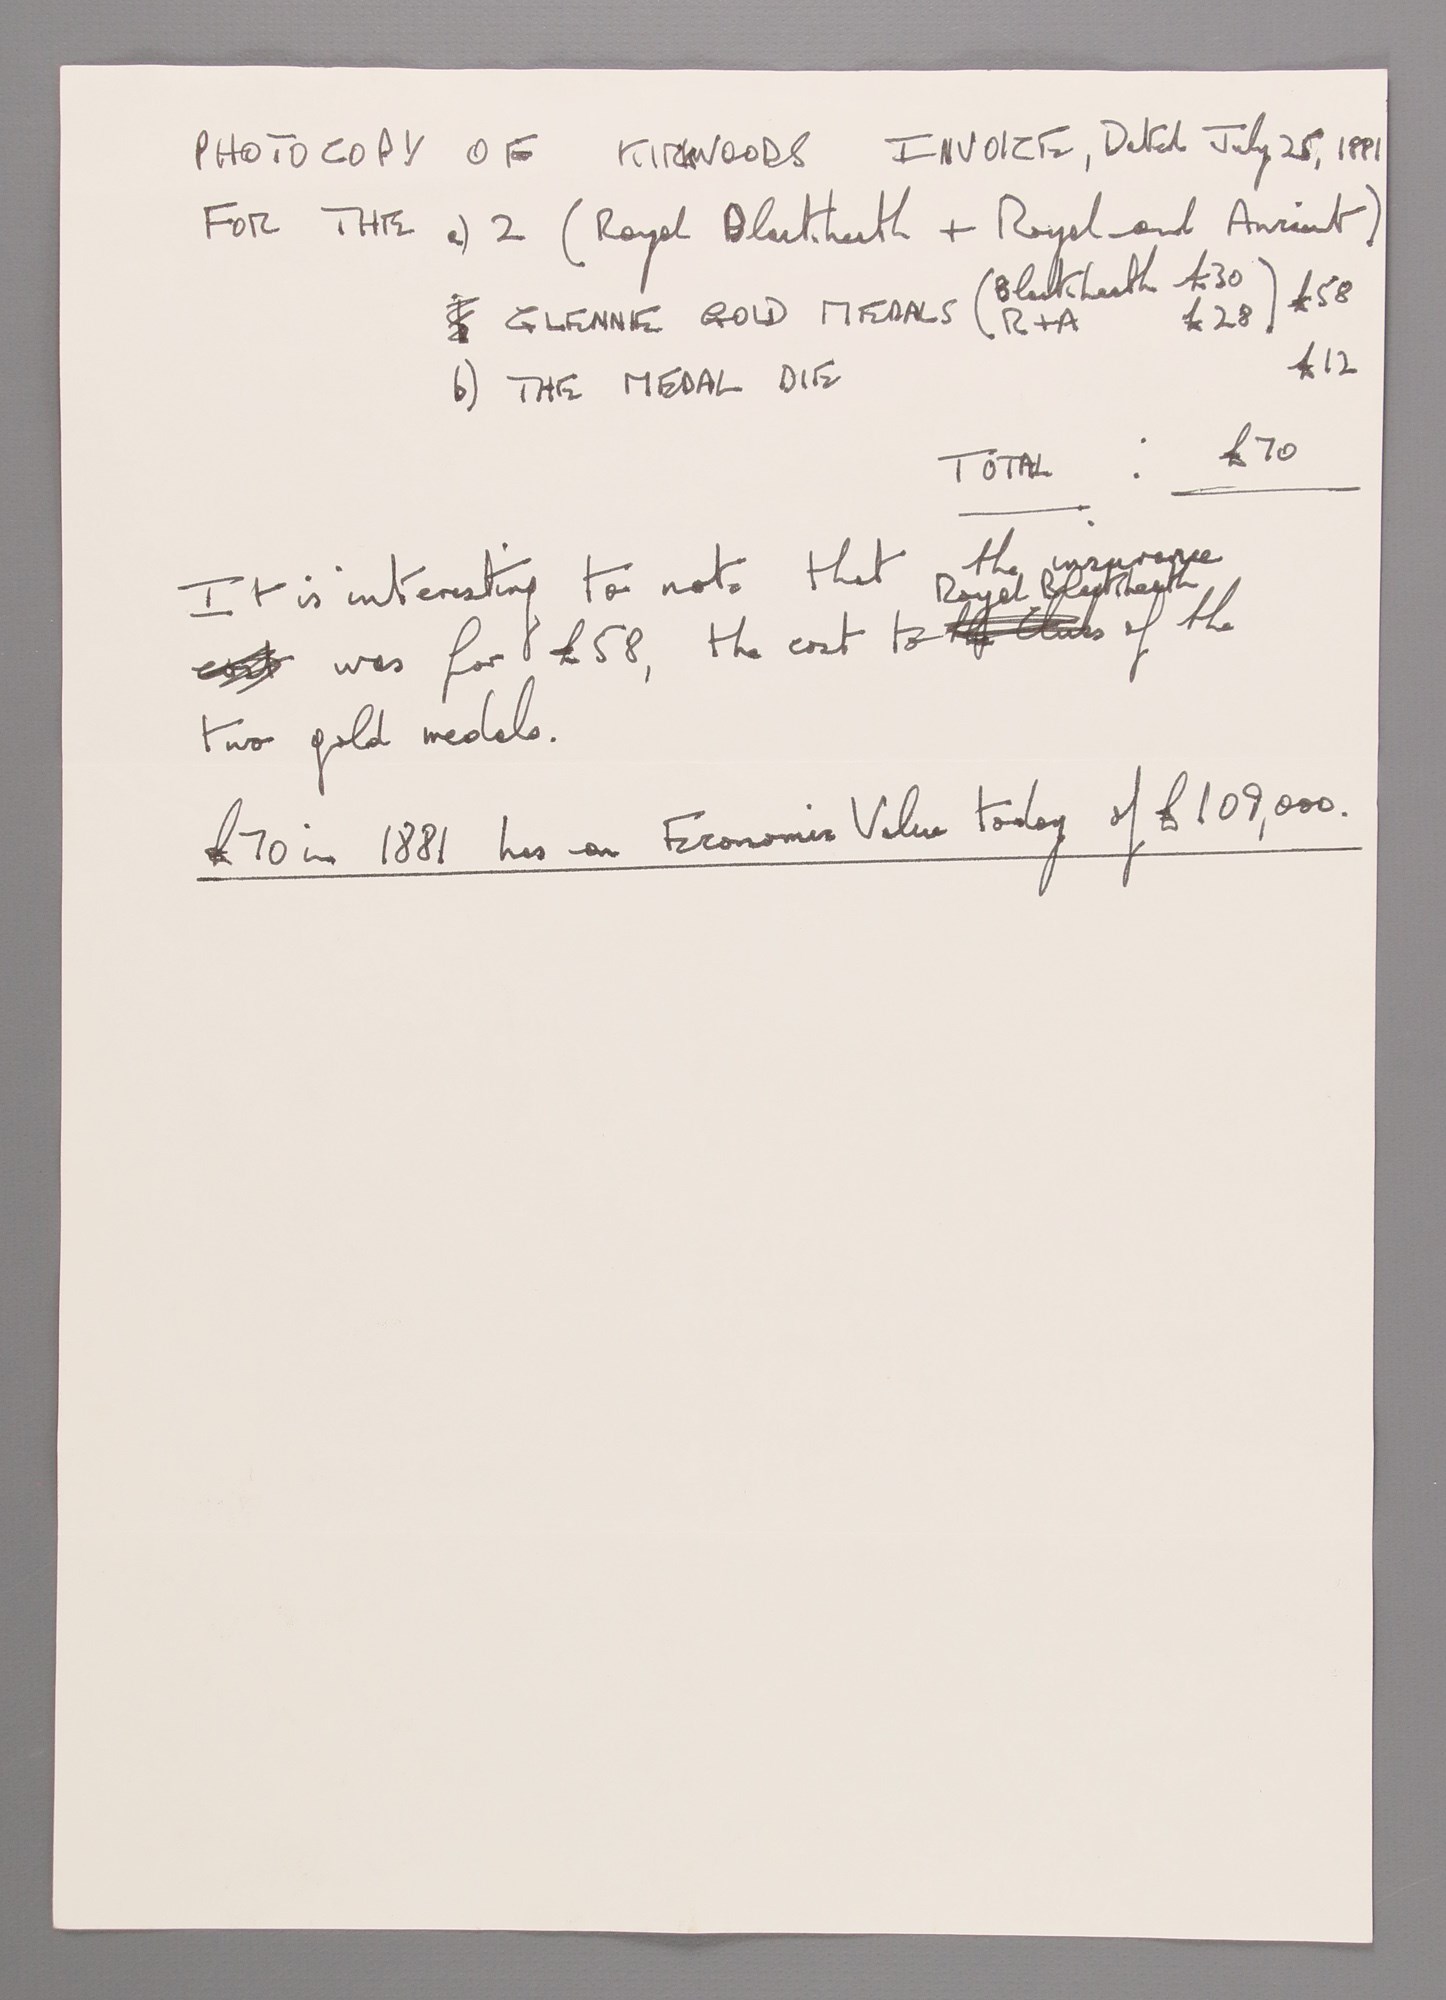 PHOTOCOPY OF KIRKWOODS INVOICE, Dated July 25, 1881
FOR THE a) 2 (Royal Blackheath + Royal and Ancient)
GLENNIE GOLD MEDALS (Blackheath £30 R+A £28) £58
b) THE MEDAL DIE £12
TOTAL : £70
It is interesting to note that the insurance
was for £58, the cost to Royal Blackheath of the
two gold medals.
£70 in 1881 has an Economic Value today of £109,000.